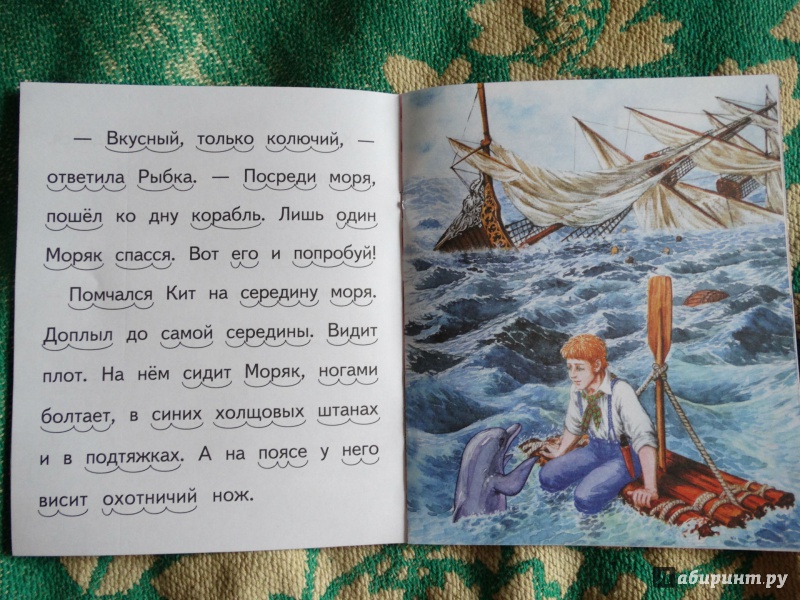 — Вкусный, только колючий, —
ответила Рыбка. — Посреди моря,
пошёл ко дну корабль. Лишь один
Моряк спасся. Вот его и попробуй!
Помчался Кит на середину моря.
Доплыл до самой середины. Видит
плот. На нём сидит Моряк, ногами
болтает, в синих холщовых штанах
и в подтяжках. А на поясе у него
висит охотничий нож.
Лабиринт.ру